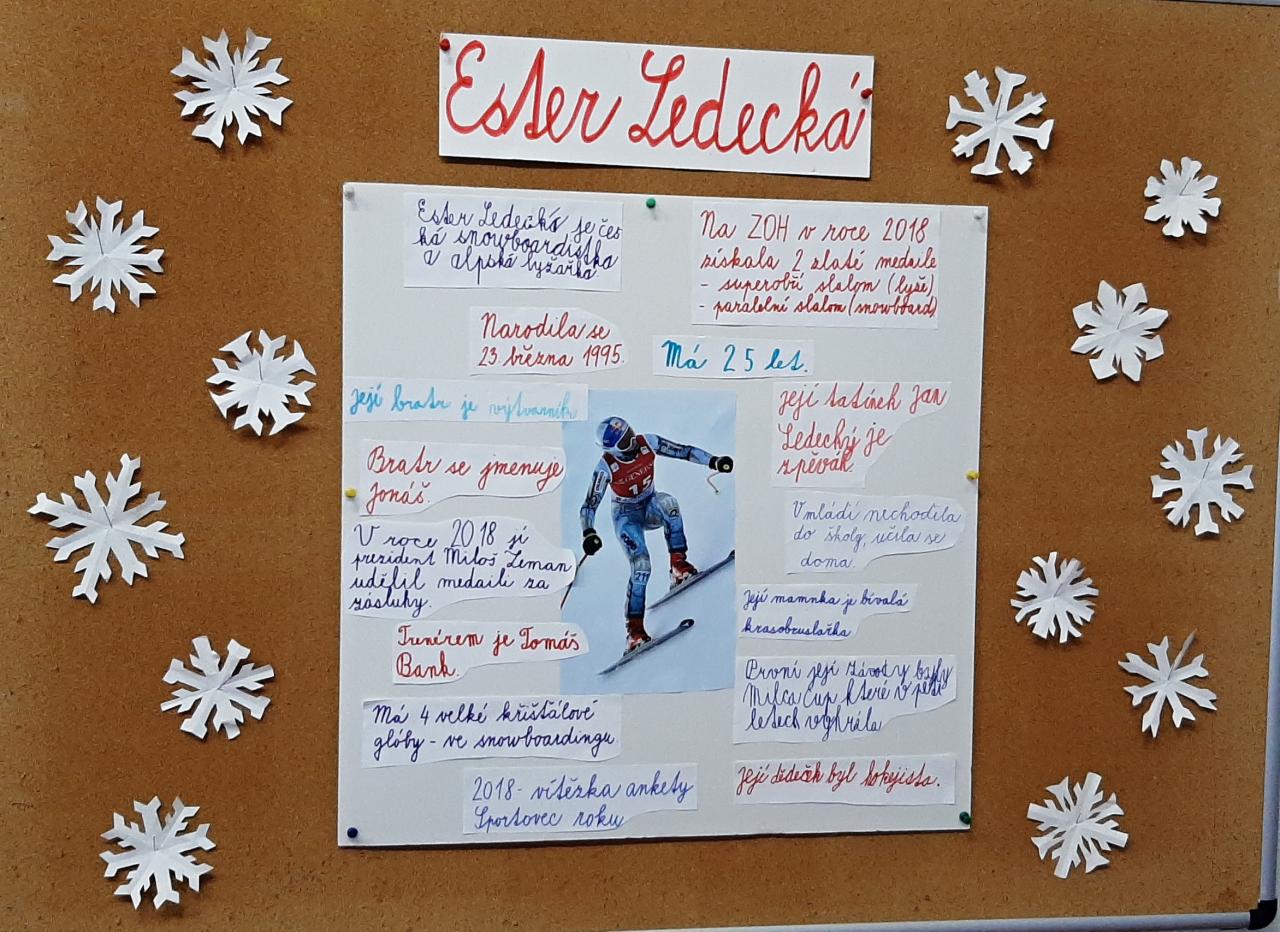 Ester Ledecká
Ester Ledecká je čes
ká snowboardistka
a alpská lyžařka.
Na ZOH v roce 2018
získala 2 zlaté medaile
- superobří slalom (lyže)
- paralelní slalom (snowboard)
Narodila se
23. března 1995.
Má 25 let.
její bratr je výtvarník
její tatínek Jan
Ledecký je
zpěvák.
Bratr se jmenuje
Jonáš.
V mládí nechodila
do školy, učila se
doma.
V roce 2018 jí
prezident Miloš Zeman
udělil medaili za
zásluhy.
Její mamnka je bívalá
krasobruslařka
Trenérem je Tomáš
Bank.
První její závod y byly
Milca Cup které v pěti
letech vyhrála
Má 4 velké křišťálové
glóby - ve snowboardingu.
2018 - vítězka ankety
Sportovec roku
Její dědeček byl hokejista.
15
21